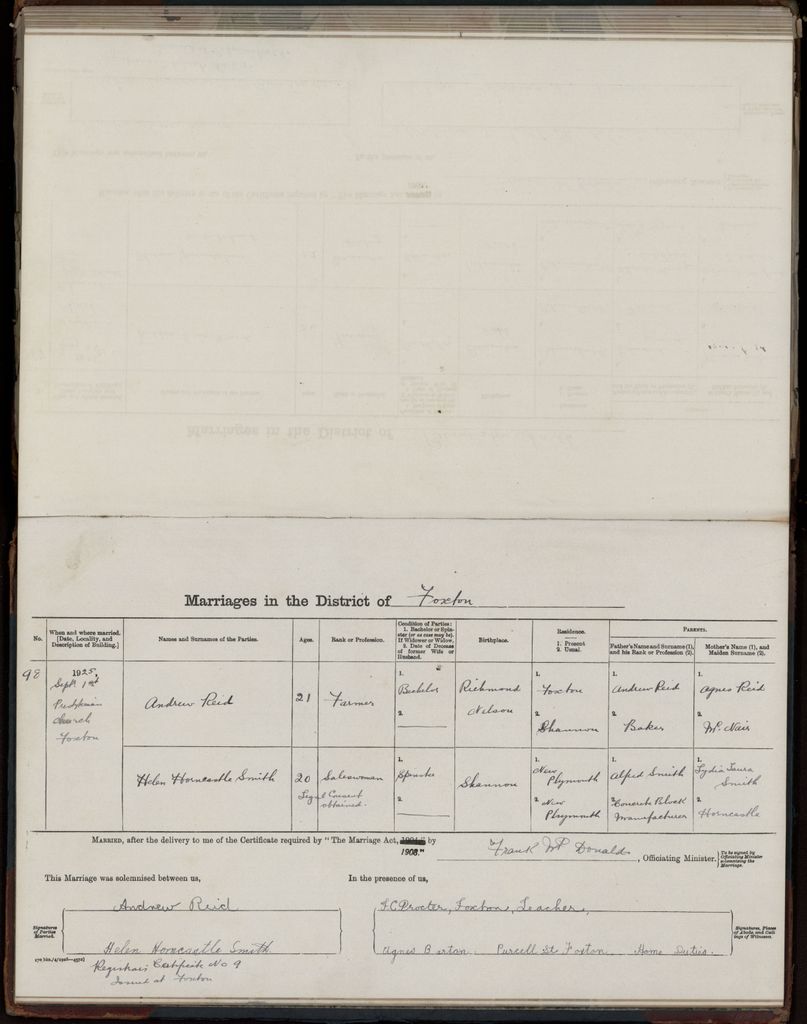 Marriages in the District of Foxton
No.
When and where married.
[Date, Locality, and
Description of Building.]
Names and Surnames of the Parties.
Ages.
Rank or Profession.
Condition of Parties:
1. Bachelor or Spin-
ster (or as case may be).
If Widower or Widow,
2. Date of Decease
of former Wife or
Husband.
Birthplace.
Residence.
1. Present
2. Usual.
Parents.
Father's Name and Surname (1),
and his Rank or Profession (2).
Mother's Name (1), and
Maiden Surname (2).
98
1925,
Sept 1st
Church
Foxton
Andrew Reid
21
Farmer
1.
Bachelor
2.
Richmond
Nelson
1.
Foxton
2.
Shannon
1.
Andrew Reid
2.
Baker
1.
Agnes Reid
2.
McNair
Helen Horncastle Smith
20
Legal Consent
obtained.
Saleswoman
1.
Spinster
2.
Shannon
1.
New
Plymouth
2.
New
Plymouth
1.
Alfred Smith
2.
Concrete Block
Manufacturer
1.
Lydia Laura
Smith
2.
Horncastle
Married, after the delivery to me of the Certificate required by "The Marriage Act, by
1908."
Frank McDonald, Officiating Minister.
[To be signed by
Officiating Minister
solemnising the
Marriage.
This Marriage was solemnised between us,
In the presence of us,
Signatures
of Parties
Married.
Andrew Reid
Helen Horncastle Smith
Procter, Foxton, Teacher,
Agnes Barton. Purcell St Foxton. Home Duties.
Signatures, Places
of Abode, and Call-
ings of Witnesses.
Registrars Certificate No 9
Issued at Foxton
Marriages in the District of